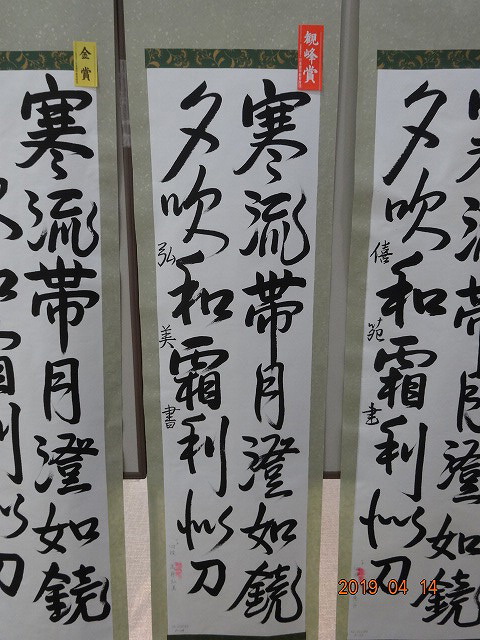 観峰賞
寒流帯月澄如鏡
夕吹和霜利似刀
弘美書
金賞
寒流帯月澄如鏡
吹和霜利似刀
寒流帯月澄如鏡
夕吹和霜利似刀
僖苑書
2019 04 14